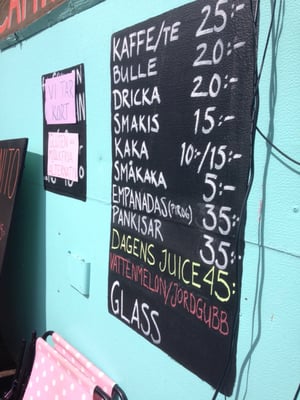 KAFFE/TE 25:-
BULLE 20:-
DRICKA 20:-
SMAKIS 15:-
KAKA 10:-/15:-
SMÅKAKA 5:-
EMPANADAS (PIROG) 35:-
PANKISAR 35:-
DAGENS JUICE 45:-
VATTENMELON/JORDGUBB
GLASS
VI TAR
KORT